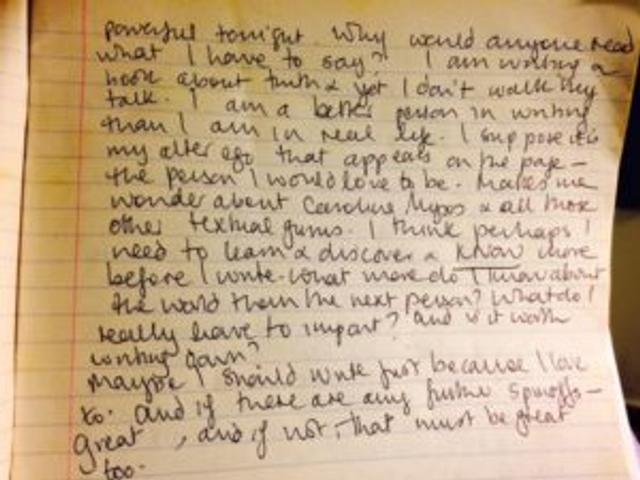 powerful tonight. Why would anyone read
what I have to say? I am writing a
book about truth & yet I don't walk my
talk. I am a better person in writing
than I am in real life. I suppose it's
my alter ego that appears on the page –
the person I would love to be. Makes me
wonder about Caroline & all those
other textual gurus. I think perhaps I
need to learn & discover & know more
before I write. What more do I know about
the world than the next person? What do I
really have to impart? And is it worth
writing down?
Maybe I should write just because I love
to. And if there are any future spinoffs –
great, and if not, that must be great
too.